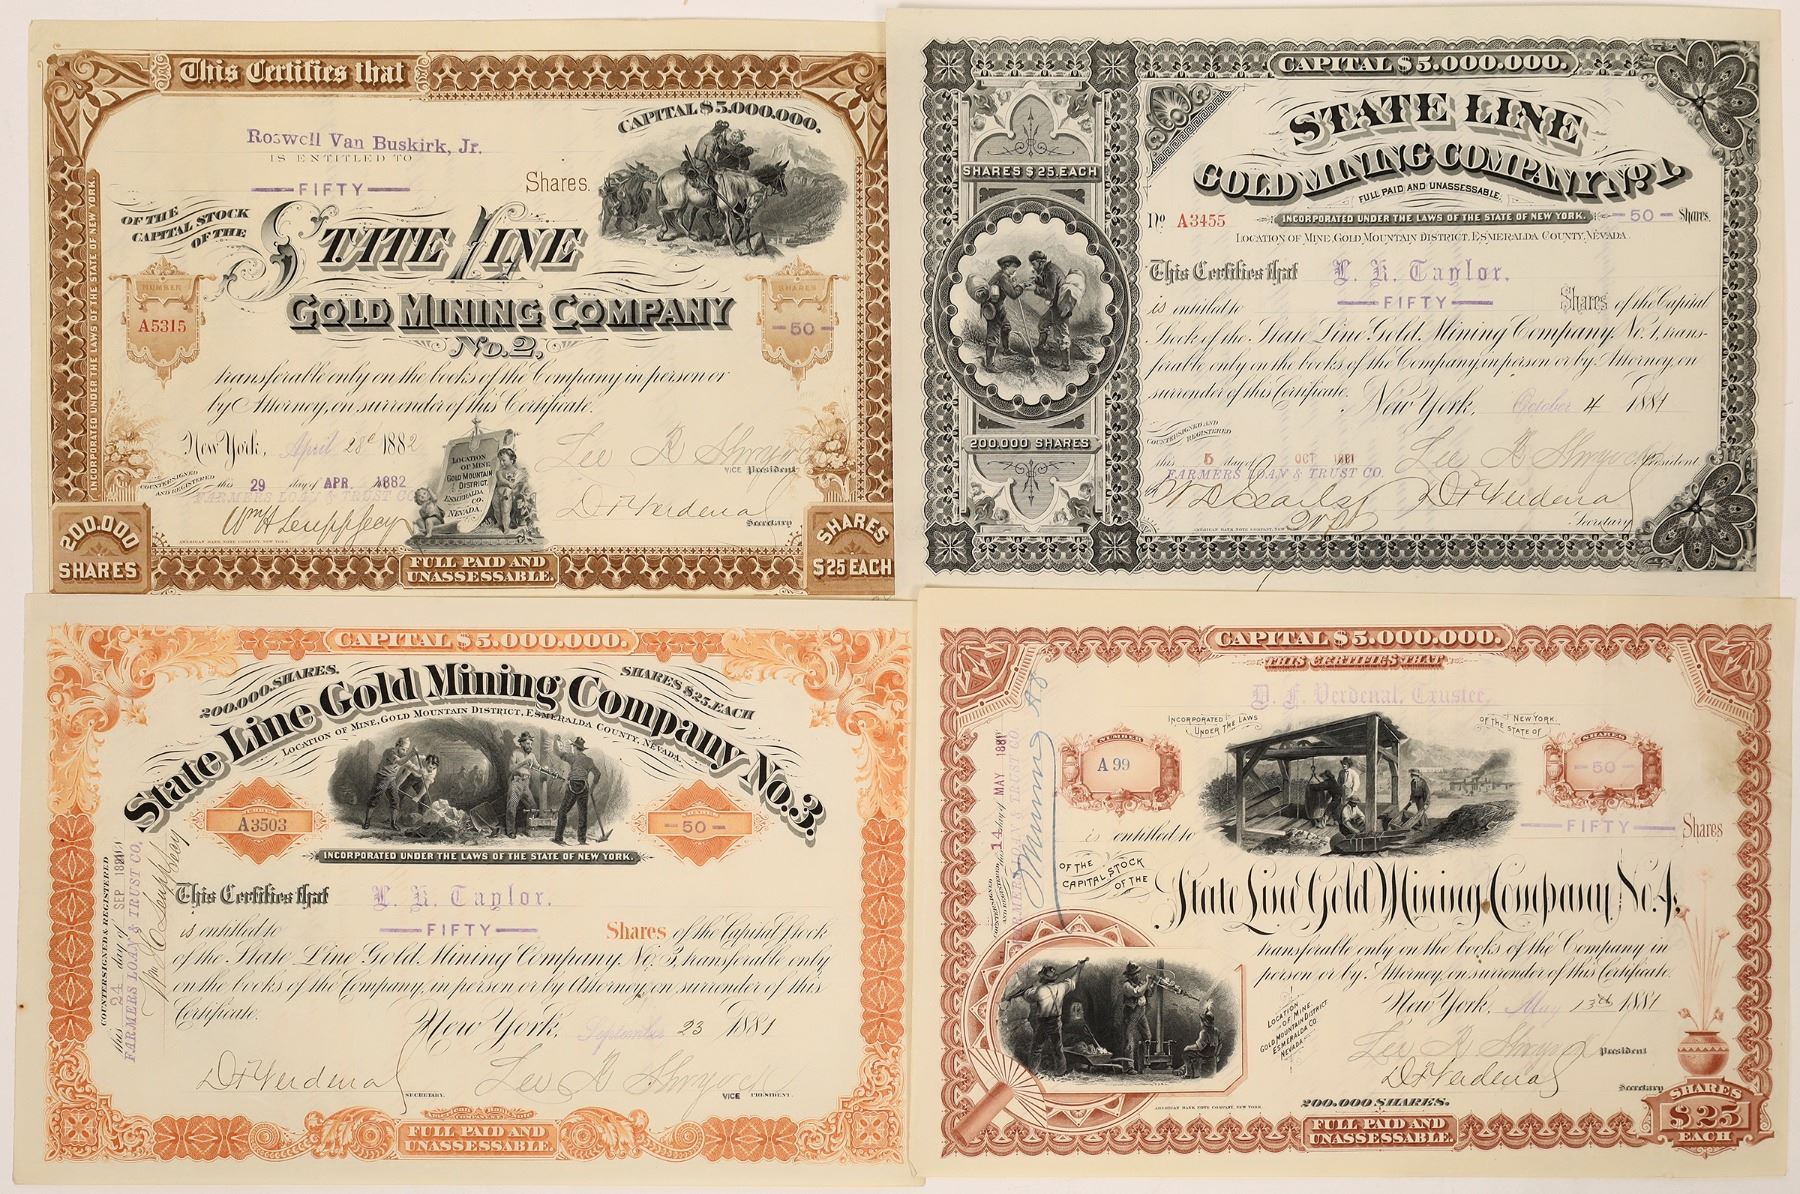 This Certifies that
CAPITAL $5.000.000.
Roswell Van Buskirk, Jr.
IS ENTITLED TO
FIFTY Shares.
OF THE CAPITAL STOCK OF THE
STATE LINE
GOLD MINING COMPANY
No. 2,
NUMBER
A5315
SHARES
- 50 -
INCORPORATED UNDER THE LAWS OF THE STATE OF NEW YORK.
transferable only on the books of the Company in person or
by Attorney, on surrender of this Certificate.
New York, April 28 1882
COUNTERSIGNED AND REGISTERED
this 29 day of APR. 1882
FARMERS LOAN & TRUST CO.
LOCATION
OF MINE
GOLD MOUNTAIN
DISTRICT.
ESMERALDA
CO.
NEVADA.
VICE President
D F Verdenal
Secretary
AMERICAN BANK NOTE COMPANY, NEW YORK.
200.000
SHARES
FULL PAID AND
UNASSESSABLE.
SHARES
$25 EACH
CAPITAL $5.000.000.
STATE LINE
GOLD MINING COMPANY No. 1.
FULL PAID AND UNASSESSABLE.
INCORPORATED UNDER THE LAWS OF THE STATE OF NEW YORK.
SHARES $25. EACH
No A3455
- 50 - Shares.
LOCATION OF MINE, GOLD MOUNTAIN DISTRICT, ESMERALDA COUNTY, NEVADA.
This Certifies that L. K. Taylor.
is entitled to FIFTY Shares of the Capital
Stock of the State Line Gold Mining Company No. 1, trans-
ferable only on the books of the Company, in person or by Attorney, on
surrender of this Certificate. New York, October 4 1881
200.000 SHARES
COUNTERSIGNED AND REGISTERED
this 5 day of OCT 1881
FARMERS LOAN & TRUST CO.
President
D F Verdenal
Secretary
AMERICAN BANK NOTE COMPANY, NEW
CAPITAL $5.000.000.
200.000. SHARES.
SHARES $25. EACH
State Line Gold Mining Company No. 3.
LOCATION OF MINE, GOLD MOUNTAIN DISTRICT, ESMERALDA COUNTY, NEVADA.
A3503
- 50 -
INCORPORATED UNDER THE LAWS OF THE STATE OF NEW YORK.
COUNTERSIGNED & REGISTERED
this 24 day of SEP 1881
FARMERS LOAN & TRUST CO.
This Certifies that L. K. Taylor.
is entitled to FIFTY Shares of the Capital Stock
of the State Line Gold Mining Company No. 3, transferable only
on the books of the Company, in person or by Attorney, on surrender of this
Certificate. New York, September 23 1881
D F Verdenal
SECRETARY.
VICE PRESIDENT.
FULL PAID AND
UNASSESSABLE.
CAPITAL $5.000.000.
THIS CERTIFIES THAT
D. F. Verdenal, Trustee,
INCORPORATED UNDER THE LAWS
OF THE STATE OF NEW YORK.
NUMBER
A 99
SHARES
- 50 -
is entitled to FIFTY Shares
OF THE CAPITAL STOCK OF THE
State Line Gold Mining Company No. 4,
transferable only on the books of the Company in
person or by Attorney, on surrender of this Certificate.
New York, May 13th 1881
COUNTERSIGNED AND REGISTERED
14 day of MAY 1881
FARMERS LOAN & TRUST CO.
LOCATION
OF MINE
GOLD MOUNTAIN DISTRICT
ESMERALDA CO.
NEVADA.
President
D F Verdenal
Secretary
AMERICAN BANK NOTE COMPANY, NEW YORK.
200.000 SHARES.
FULL PAID AND
UNASSESSABLE.
SHARES
$25
EACH